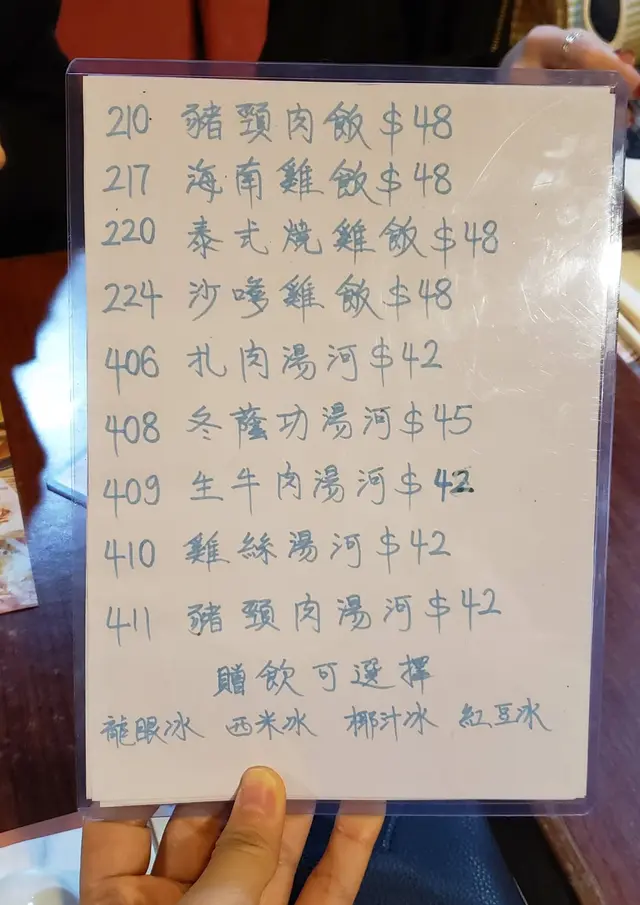 210 豬頸肉飯 $48
217 海南雞飯 $48
220 泰式燒雞飯 $48
224 沙嗲雞飯 $48
406 扎肉湯河 $42
408 冬蔭功湯河 $45
409 生牛肉湯河 $42
410 雞絲湯河 $42
411 豬頸肉湯河 $42
贈飲可選擇
龍眼冰 西米冰 椰汁冰 紅豆冰